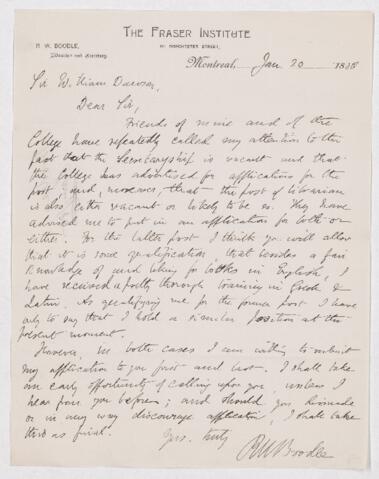 THE FRASER INSTITUTE
R. W. BOODLE,
Director and Secretary
MANCHESTER STREET,
Montreal, Jan. 20 18
Sir William Dawson,
Dear Sir,
Friends of mine and of the
College have repeatedly called my attention to the
fact that the Secretaryship is vacant and that
the College has advertised for applications for the
post and, moreover, that the post of librarian
is also either vacant or likely to be so. They have
advised me to put in an application for both or
either. For the latter post I think you will allow
that it is some qualification, that besides a fair
knowledge of and liking for books in English, I
have received a training in Greek &
Latin. As qualifying me for the former post I have
only to say that I hold a similar position at the
present moment.
However, in both cases I am willing to submit
my application to you first and last. I shall take
an early opportunity of calling upon you, unless I
hear from you before; and should you dissuade
or in any way discourage application, I shall take
this as final.
Yrs. truly
RW Boodle